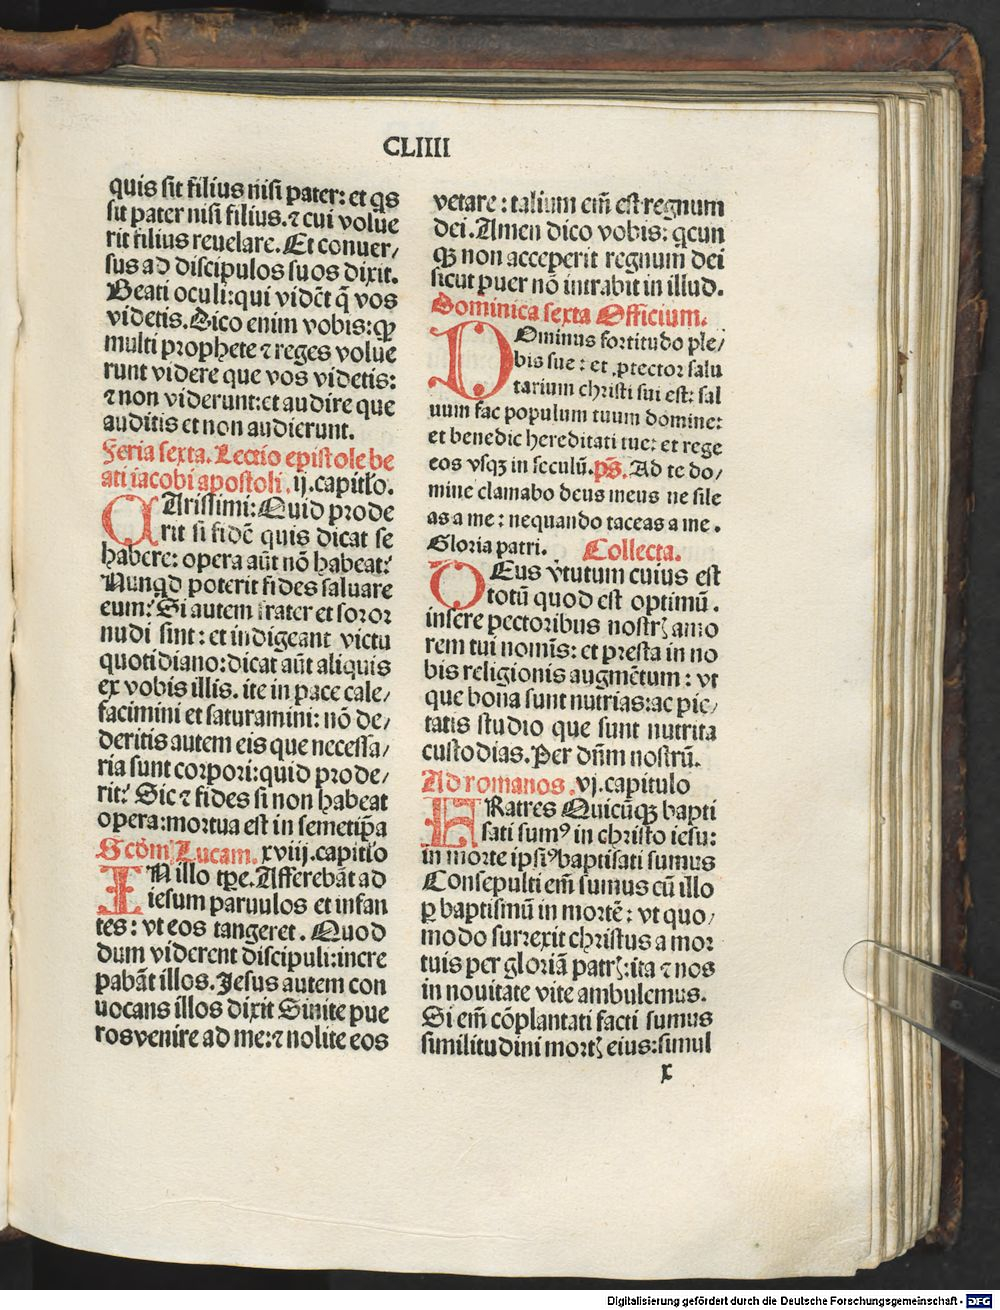 CLIIII
quis sit filius nisi pater: et q̃s
sit pater nisi filius. ⁊ cui volue
rit filius reuelare. Et conuer/
sus ad discipulos suos dixit.
Beati oculi: qui vidẽt q̃ vos
videtis. Dico enim vobis: ꝙ
multi prophete ⁊ reges volue
runt videre que vos videtis:
⁊ non viderunt: et audire que
auditis et non audierunt.
Feria sexta. Lectio epistole be
ati iacobi apostoli. ij. capitło.
CArissimi: Quid prode
rit si fidẽ quis dicat se
habere: opera aũt nõ habeat?
Nunqd poterit fides saluare
eum? Si autem frater et soror
nudi sint: et indigeant victu
quotidiano: dicat aũt aliquis
ex vobis illis. ite in pace cale/
facimini et saturamini: nõ de/
deritis autem eis que necessa/
ria sunt corpori: quid prode/
rit? Sic ⁊ fides si non habeat
opera: mortua est in semetip̃a
Scðm Lucam. xviij. capitło
IN illo tp̃e. Afferebãt ad
iesum paruulos et infan
tes: vt eos tangeret. Quod
dum viderent discipuli: incre
pabãt illos. Jesus autem con
uocans illos dixit Sinite pue
ros venire ad me: ⁊ nolite eos
vetare: talium em̃ est regnum
dei. Amen dico vobis: qcun
qꝫ non acceperit regnum dei
sicut puer nõ intrabit in illud.
Dominica sexta Officium.
DOminus fortitudo ple/
bis sue: et ꝓtector salu
tarium christi sui est: sal
uum fac populum tuum domine:
et benedic hereditati tue: et rege
eos vsqꝫ in seculũ. p̃s. Ad te do/
mine clamabo deus meus ne sile
as a me: nequando taceas a me.
Gloria patri. Collecta.
DEus v̾tutum cuius est
totũ quod est optimũ.
insere pectoribus nostrꝭ amo
rem tui nominis: et presta in no
bis religionis augmẽtum: vt
que bona sunt nutrias: ac pie/
tatis studio que sunt nutrita
custodias. Per dñm nostrũ.
Ad romanos. vj. capitulo
FRatres Quicũqꝫ bapti
sati sumꝰ in christo iesu:
in morte ipsiꝰ baptisati sumus
Consepulti em̃ sumus cũ illo
ꝑ baptismũ in mortẽ: vt quo/
modo surrexit christus a mor
tuis per gloriã patrꝭ: ita ⁊ nos
in nouitate vite ambulemus.
Si em̃ cõplantati facti sumus
similitudini mortꝭ eius: simul
x
Digitalisierung gefördert durch die Deutsche Forschungsgemeinschaft - DFG